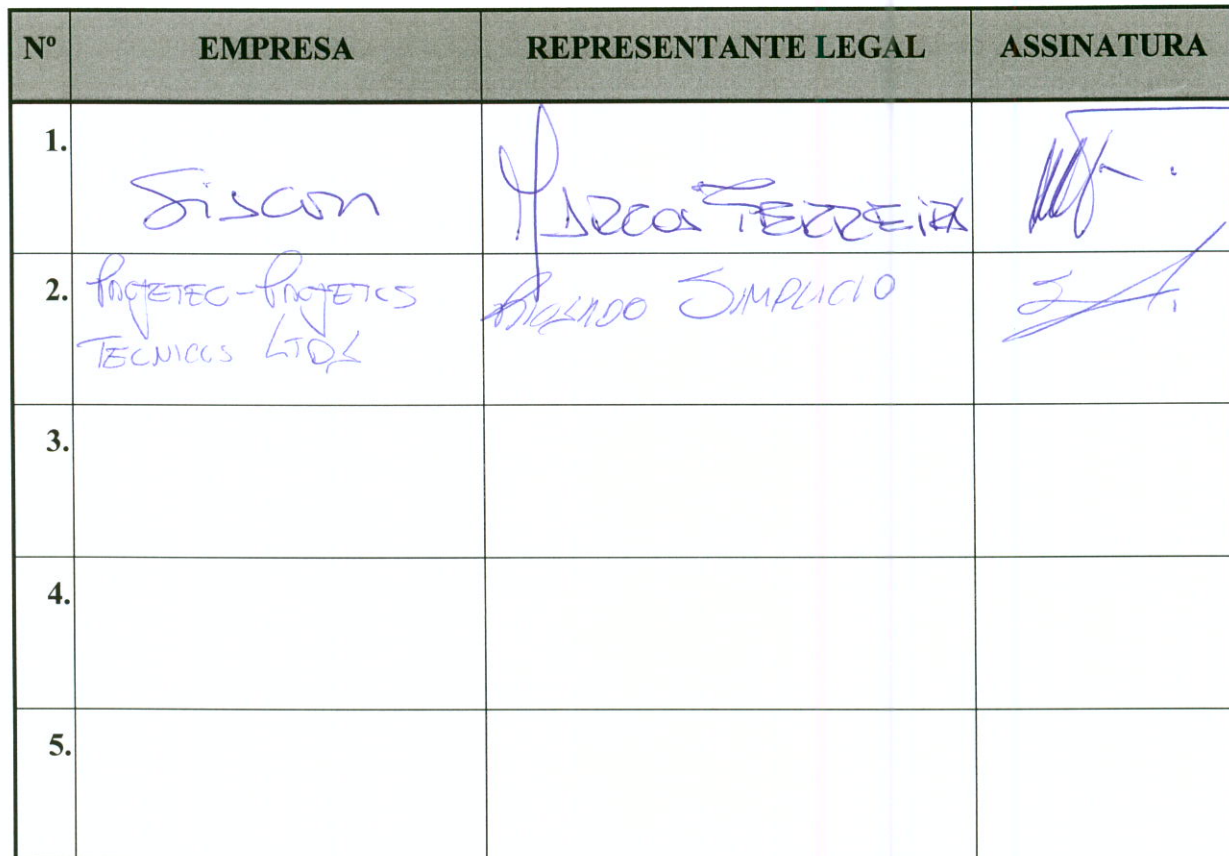 Nº EMPRESA REPRESENTANTE LEGAL ASSINATURA
1. Siscon MARCOS FERREIRA
2. PROJETEC - PROJETOS SIMPLICIO
TECNICOS LTDA
3.
4.
5.